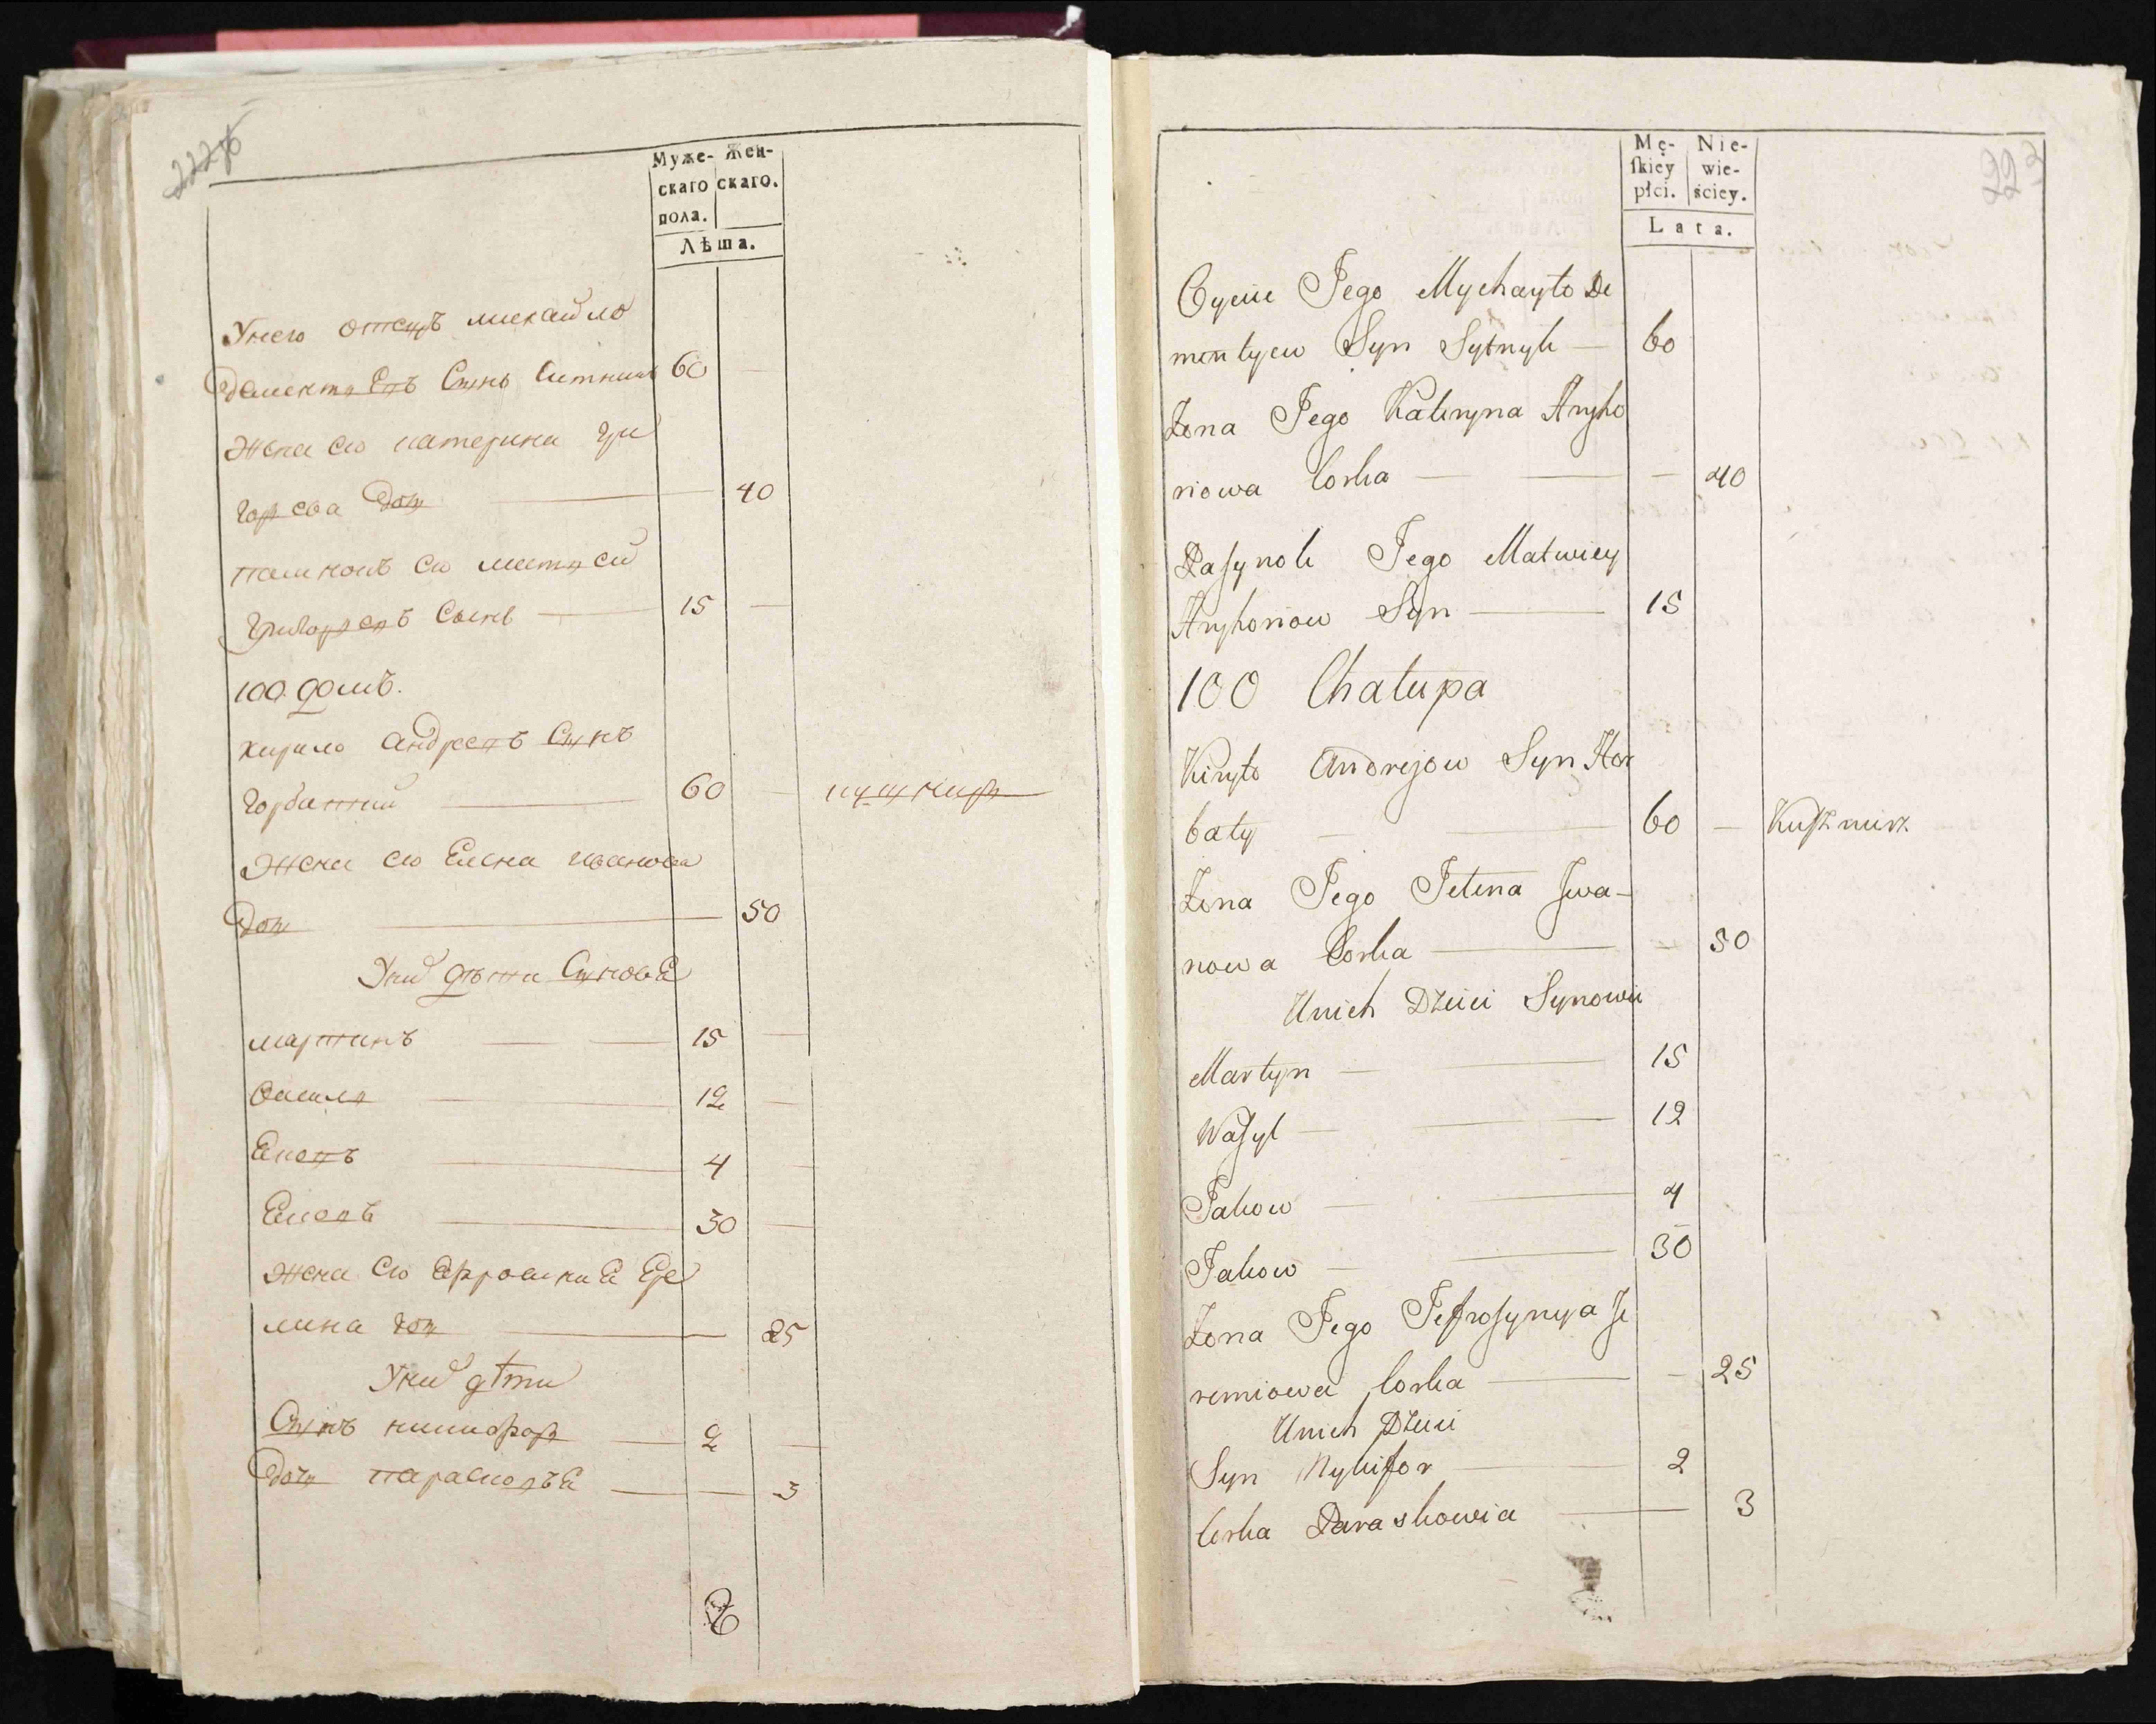 222об
Муже-
скаго
пола.
Жен-
скаго.
Лѣта.
У него отецъ михайло
Дементьевъ Сынъ Ситникъ 60 —
Жена его катерина гри
горьева дочь — 40
пасынокъ его матвей
григорьевъ Сынъ — 15 —
100. домъ.
кирило андреевъ Сынъ
горбатий — 60 — кушниръ
Жена его Елена иванова
дочь — 50
У них дѣти Синовья
мартинъ — — 15 —
василь — 12 —
Яковъ — 4 —
Яковъ — 30 —
Жена его Ефросиния Ере
мина дочь — 25
У них дѣти
Сынъ никифоръ — 2 —
дочь парасковья — — 3
223
Mę-
ſkiey
płci.
Nie-
wie-
ściey.
Lata.
Oyciec Jego Mychayło De
mentyew Syn Sytnyk — 60
Żona Jego Kateryna Hryho
riowa Corka — — — 40
Pasynok Jego Matwiey
Hryhoriow Syn — 15
100 Chałupa
Kiryło Andrejow Syn Hor
baty — — 60 — Kusznirz
Żona Jego Jełena Jwa-
nowa Corka — — 50
U nich Dzieci Synowie
Martyn — — 15
Wasyl — — 12
Jakow — — 4
Jakow — — 30
Żona Jego Jefrosynya Je
remiowa Corka — — 25
U nich Dzieci
Syn Nykifor — 2
Corka Paraskowia — 3